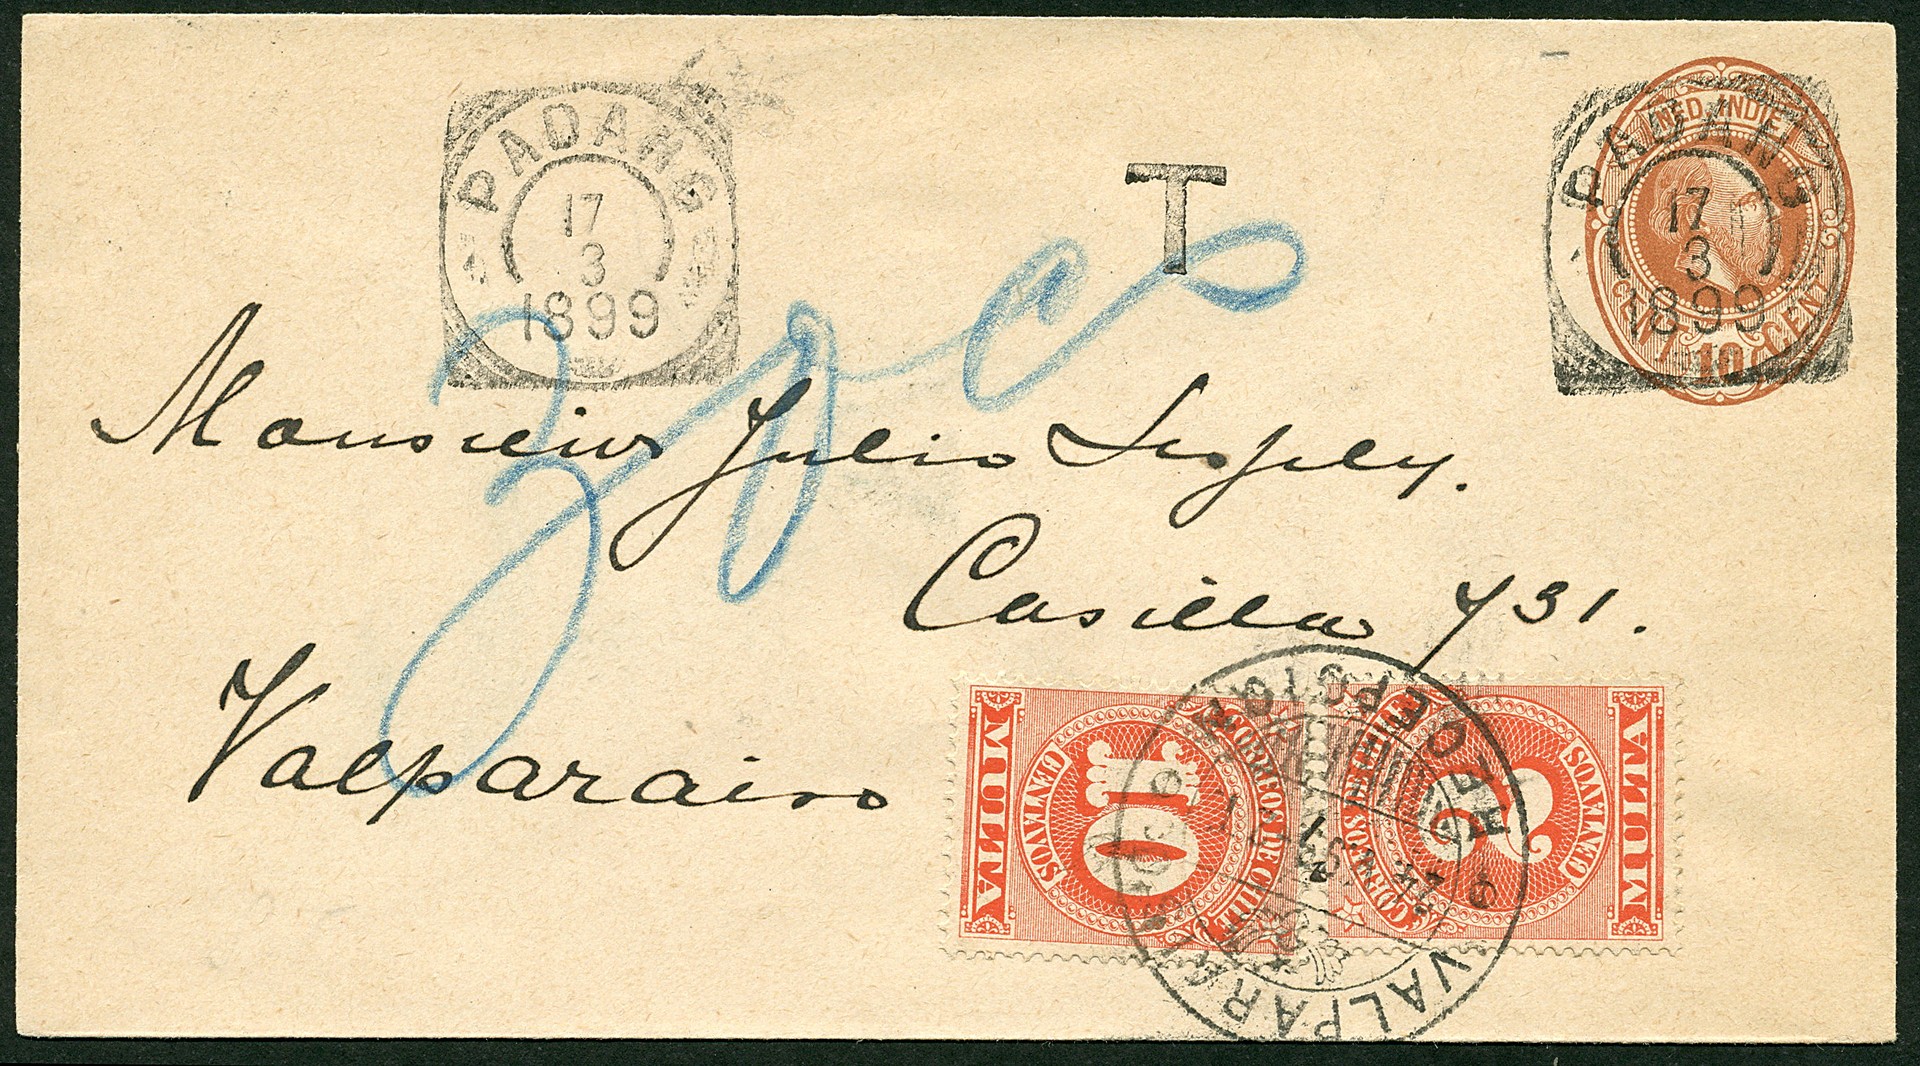 PADANG
17
3
1899
T
NED. INDIE
PADANG
17
3
1899
10 CENT
Monsieur Julio
Casilla 731.
Valparaiso
MULTA
10
CENTAVOS
CORREOS DE CHILE
MULTA
2
CENTAVOS
CORREOS DE CHILE
VALPARAISO